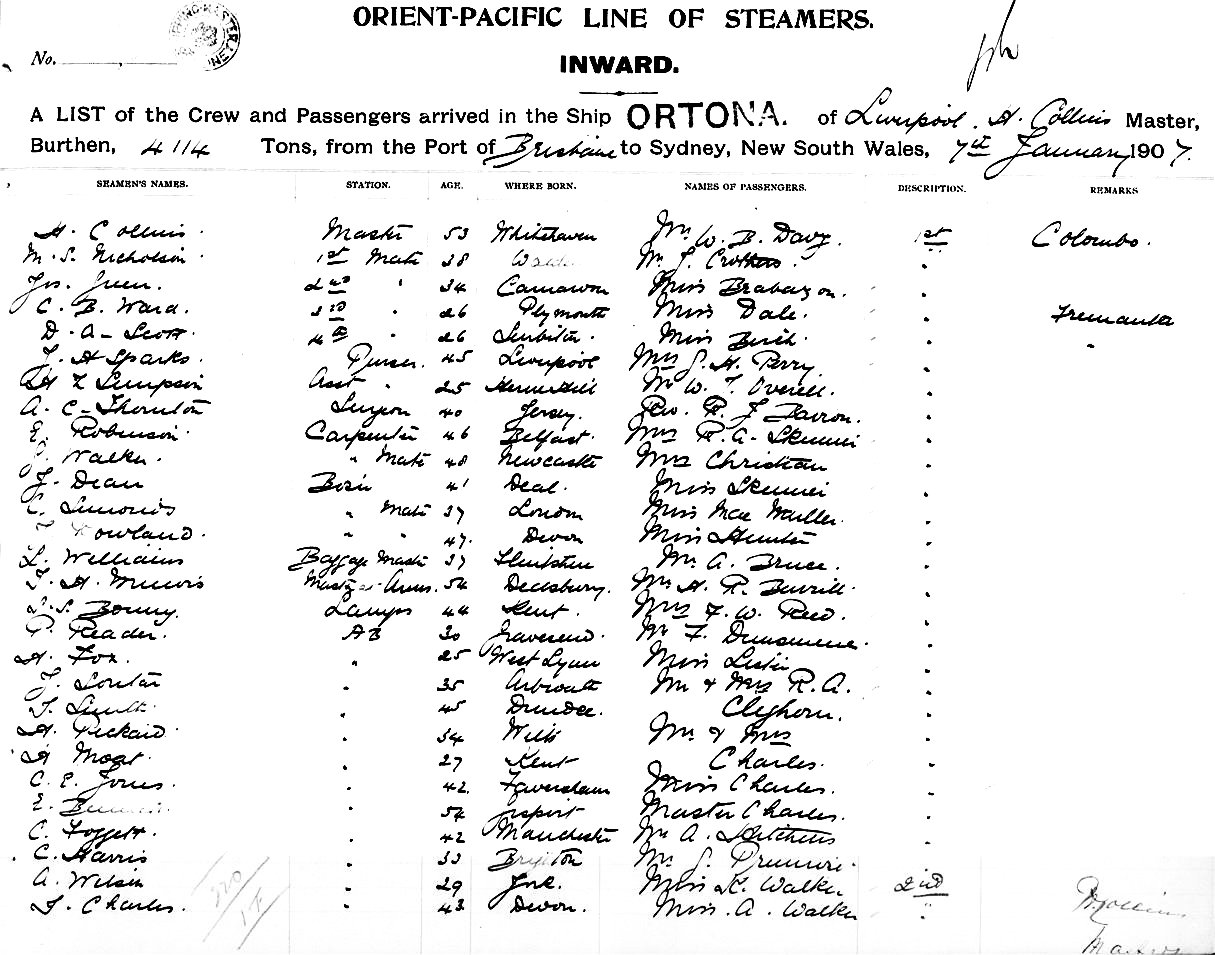 ORIENT-PACIFIC LINE OF STEAMERS.
No.
INWARD.
A LIST of the Crew and Passengers arrived in the Ship ORTONA. of Liverpool. H. Collins Master,
Burthen, 4114 Tons, from the Port of Brisbane to Sydney, New South Wales, 7th January 1907.
SEAMEN'S NAMES. STATION. AGE. WHERE BORN. NAMES OF PASSENGERS. DESCRIPTION. REMARKS
H. Collins. Master 53 Whitehaven Mr. W. B. Davy. 1st Colombo.
M. S. Nicholson. 1st Mate 38 Mr. J. Crothers. "
Jos. Green. 2nd " 34 Carnarvon Miss Brabazon. "
C. B. Ward. 3rd " 26 Plymouth Miss Dale. " Fremantle
D. A. Scott. 4th " 26 Surbiton. Miss Birch. " "
J. H Sparks. Purser. 45 Liverpool Mrs S. H. Perry. "
Simpson Asst " 25 Herne Hill Mr W. T. Overell. "
A. C. Thornton Surgeon 40 Jersey. Rev. R. J "
E. Robinson. Carpenter 46 Belfast. Mrs R. A. Skinner "
J. Walker. " Mate 48 Newcastle Mrs Christian "
J. Dean Bosn 41 Deal. Miss Skinner "
Simonds " Mate 37 London Miss Mae "
Rowland. " " 47. Devon Miss Hunter "
L. Williams Baggage Master 37 Mr. A. Bruce. "
Master at Arms. 54 Mr. H. R. "
Bonny. Lamps 44 Kent. Mrs F. W. Reed "
P. Reader. AB 30 Gravesend. Mr F. "
H. Fox. " 25 West Lynn Miss "
J. Souter " 35 Arbroath Mr & Mrs R. A. "
Smith. " 45 Dundee. Cleghorn. "
H. Pickard. " 34 Mr & Mrs "
H Moat. " 27 Kent Charles. "
C. E. Jones. " 42. Faversham Miss Charles. "
E. " 54 Gosport Master Charles. "
C. Foggett. " 42 Manchester Mr A. Hitchens "
C. Harris " 33 Brixton Mr. S. "
A. Wilson " 29 Miss K. Walker 2nd
Charles. " 43 Devon. Miss. A. Walker "
H. Collins
Master